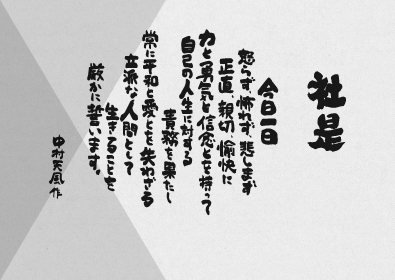 社是
今日一日
怒らず 怖れず 悲しまず
正直 親切 愉快に
力と勇気と信念とを持って
自己の人生に対する
責務を果たし
常に平和と愛とを失わざる
立派な人間として
生きることを
厳かに誓います。
中村天風 作